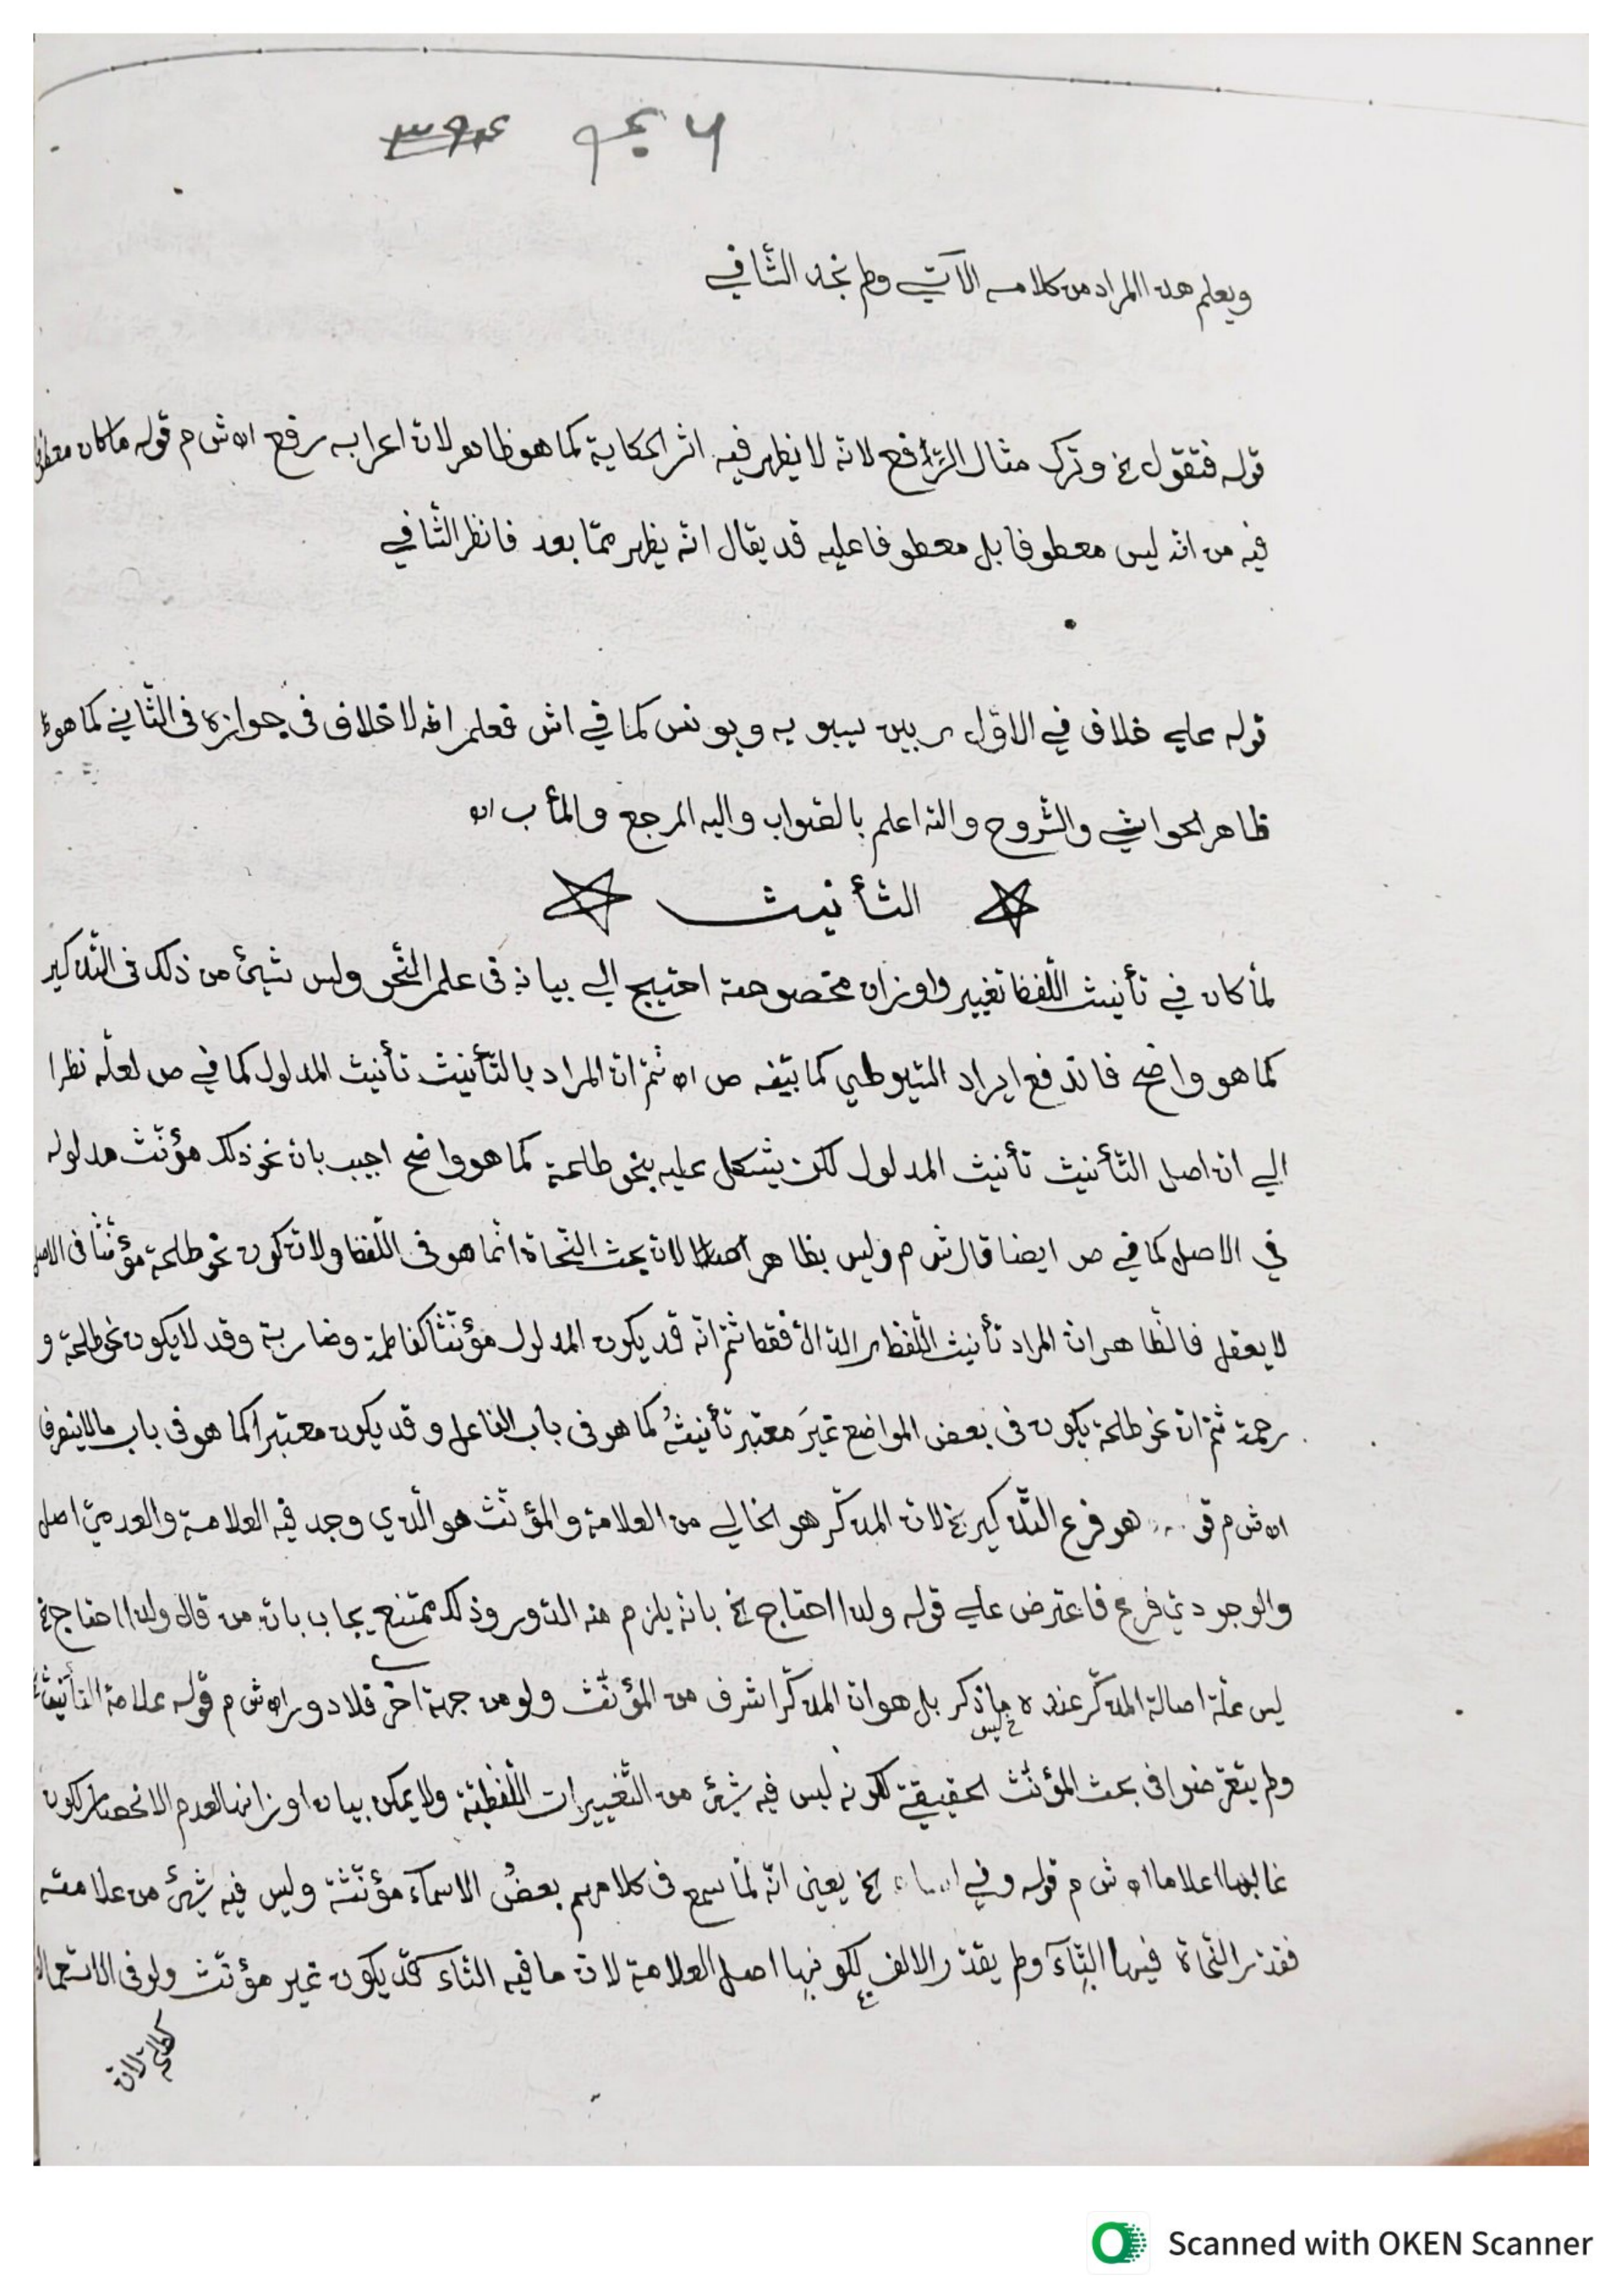 ويعلم هذا المراد من كلامه الآتي ولم نجد الشافي
قوله فتقول الخ وترك مثال الرافع لانه لا يظهر فيه اثر الحكاية كما هو ظاهر لان اعرابه رفع اه ش م قوله ما كان معطوفا
فيه من انه ليس معطوفا بل معطوفا عليه قد يقال انه يظهر ممّا بعد فانظر الشافي
قوله علي خلاف في الاوّل بين سيبويه ويونس كما في اش فعلم انه لا خلاف في جوازه في الثّاني كما هو
ظاهر الحواشي والشّروح والله اعلم بالصّواب واليه المرجع والمأب اه
التأنيث
لمّا كان في تأنيث اللّفظ تغيير واوزان مخصوصة احتيج الي بيانه في علم النّحو وليس شيئ من ذلك في التّذكير
كما هو واضح فاندفع ايراد السّيوطي كما بيّنه ص اه ثمّ انّ المراد بالتّأنيث تأنيث المدلول كما في ص لعلّه نظرا
الي ان اصل التّأنيث تأنيث المدلول لكن يشكل عليه بنحو طلحة كما هو واضح اجيب بان نحو ذلك مؤنّث مدلوله
في الاصل كما في ص ايضا قال ش م وليس بظاهر لان بحث النّحاة انّما هو في اللّفظ ولان كون نحو طلحة مؤنّثا في الاصل
لا يعقل فالظّاهر انّ المراد تأنيث اللّفظ الدّالّ فقط ثمّ انّه قد يكون المدلول مؤنّثا كفاطمة وضاربة وقد لا يكون نحو طلحة و
رحمة ثمّ انّ نحو طلحة يكون في بعض المواضع غيرَ معتبر تأنيثُه كما هو في باب الفاعل وقد يكون معتبرا كما هو في باب ما لا ينصرف
اه ش م هو فرع التّذكير الخ لان المذكّر هو الخالي من العلامة والمؤنّث هو الّذي وجد فيه العلامة والعدميّ اصل
والوجوديّ فرع فاعترض علي قوله ولذا احتاج الخ بانه يلزم منه الدّور وذلك ممتنع يجاب بان من قال ولذا احتاج الخ
ليس علّة اصالة المذكّر عنده ما ذكر بل هو ان المذكّر اشرف من المؤنّث ولو من جهة اخرى فلا دور اه ش م قوله علامة التّأنيث
ولم يتعرّضوا في بحث المؤنّث الحقيقي لكونه ليس فيه شيئ من التّغييرات اللّفظيّة ولا يمكن بيان اوزانها لعدم الانحصار لكون
غالبها اعلاما اه ش م قوله وفي الخ يعني انّه لمّا سمع في كلامهم بعضُ الاسماء مؤنّثة وليس فيه شيئ من علامته
فقدّر النّحاة فيها التّاء ولم يقدّر الالف لكونها اصل العلامة لان ما فيه التاء قد يكون غير مؤنّث ولو في الاستعمال
كطلحة لان
Scanned with OKEN Scanner